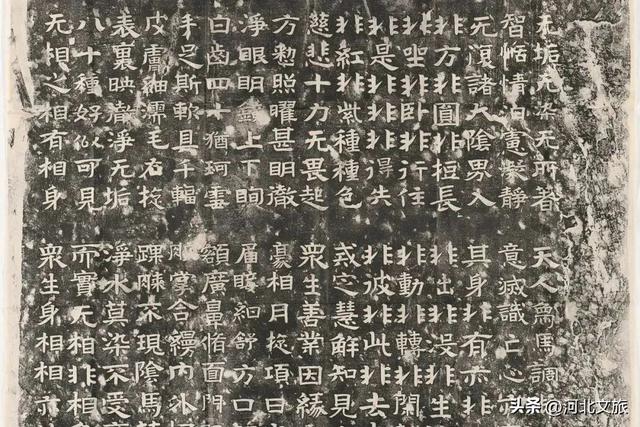 无垢无染无所著 天人爲馬調
智恬情怕慮凝静 意滅識亡心亦
无復諸大陰界入 其身非有亦非
非方非圓非短長 非出非没非生
非坐非卧非行住 非動非轉非閑
非是非非非得失 非彼非此非去
非紅非紫種種色 戒定慧解知見
慈悲十力无畏起 衆生善業因緣
方整照曜甚明徹 豪相月旋項日
淨眼明鏡上下眴 眉睫紺舒方口
白齒四十猶珂雪 額廣鼻脩面門
手足柔軟具千輻 掌合縵内外
皮膚紬濡毛右旋 踝膝不現陰馬
表裏映徹淨无垢 淨水莫染不受
八十種好似可見 而實无相非相
无相之相有相身 衆生身相相亦
头条 @河北文旅